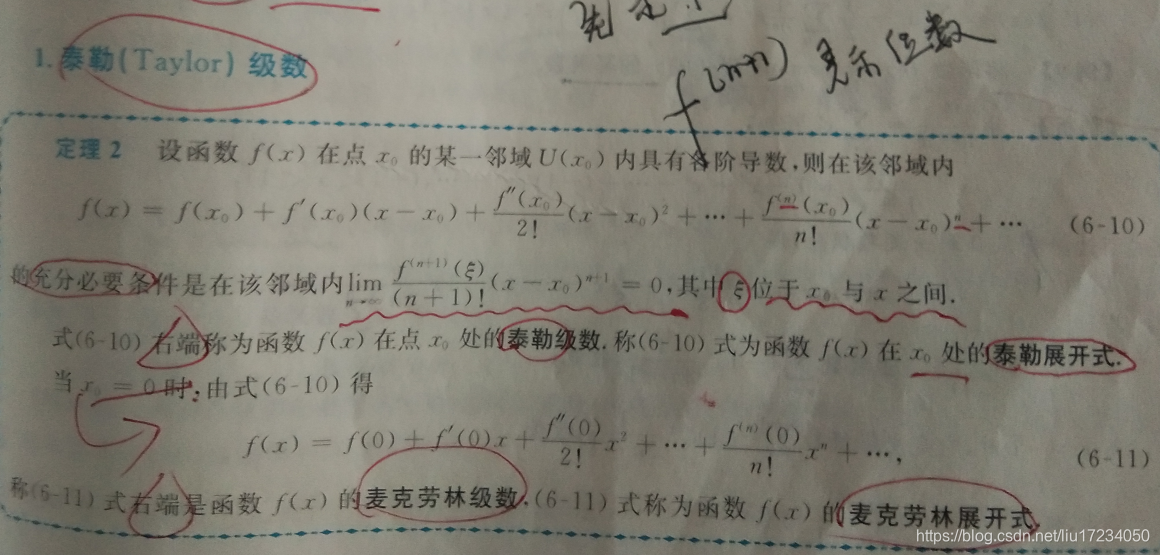 f⁽ⁿ⁺¹⁾ 表示位数
1. 泰勒(Taylor) 级数
定理 2 设函数 f(x) 在点 x₀ 的某一邻域 U(x₀) 内具有各阶导数,则在该邻域内
f(x) = f(x₀) + f′(x₀)(x − x₀) + f″(x₀)/2! (x − x₀)² + ⋯ + f⁽ⁿ⁾(x₀)/n! (x − x₀)ⁿ + ⋯ (6-10)
的充分必要条件是在该邻域内 lim n→∞ f⁽ⁿ⁺¹⁾(ξ)/(n + 1)! (x − x₀)ⁿ⁺¹ = 0,其中 ξ 位于 x₀ 与 x 之间.
式(6-10) 右端称为函数 f(x) 在点 x₀ 处的泰勒级数. 称(6-10) 式为函数 f(x) 在 x₀ 处的泰勒展开式.
当 x₀ = 0 时,由式(6-10) 得
f(x) = f(0) + f′(0)x + f″(0)/2! x² + ⋯ + f⁽ⁿ⁾(0)/n! xⁿ + ⋯, (6-11)
称(6-11) 式右端是函数 f(x) 的麦克劳林级数,(6-11) 式称为函数 f(x) 的麦克劳林展开式.
https://blog.csdn.net/liu17234050